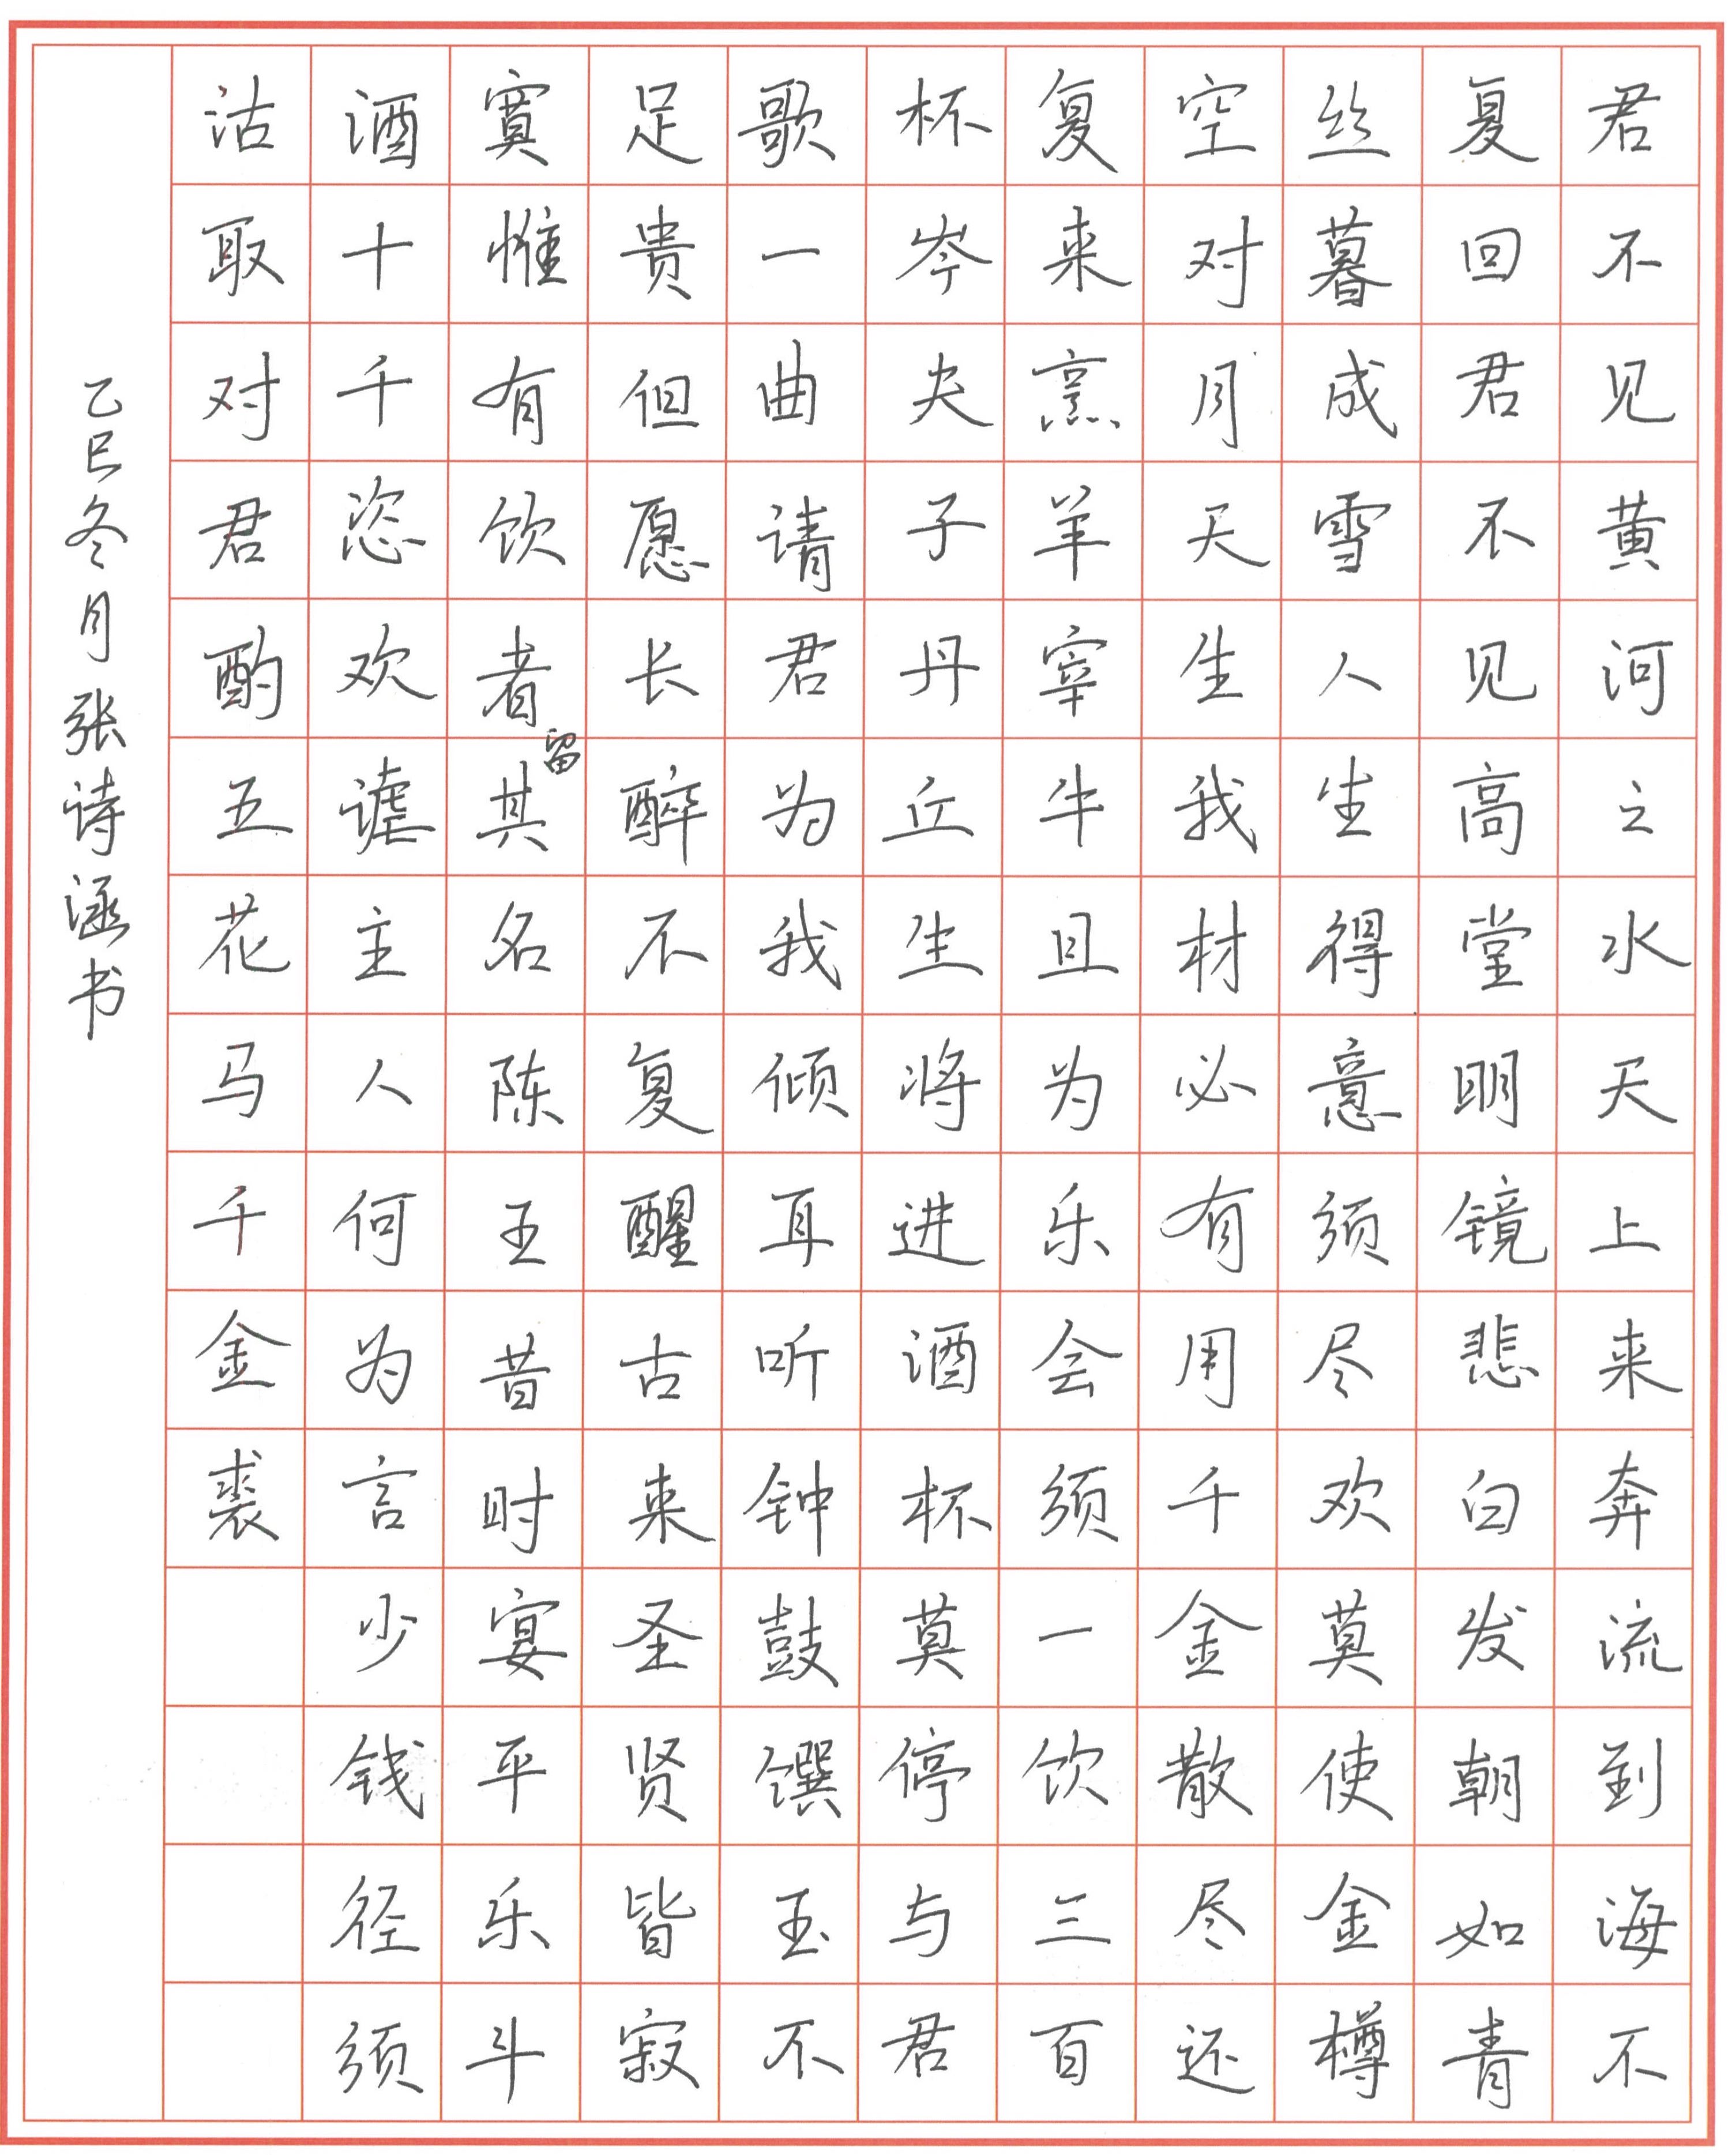 君不见黄河之水天上来奔流到海不
复回君不见高堂明镜悲白发朝如青
丝暮成雪人生得意须尽欢莫使金樽
空对月天生我材必有用千金散尽还
复来烹羊宰牛且为乐会须一饮三百
杯岑夫子丹丘生将进酒杯莫停与君
歌一曲请君为我倾耳听钟鼓馔玉不
足贵但愿长醉不复醒古来圣贤皆寂
寞惟有饮者留其名陈王昔时宴平乐斗
酒十千恣欢谑主人何为言少钱径须
沽取对君酌五花马千金裘
乙巳冬月张诗涵书